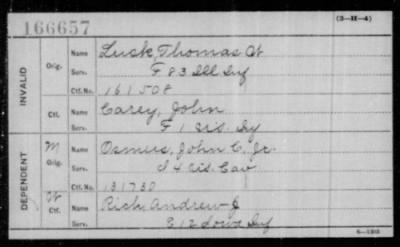 166657
(3-H-4)
INVALID
Orig.
Name Lusk, Thomas W
Serv. F 83 Ill Inf
Ctf. No. 161508
Ctf.
Name Carey, John
Serv. F 1 Wis. Inf
DEPENDENT
M
Orig.
Name Osmus, John C. Jr.
Serv. I 4 Wis. Cav
Ctf. No. 131730
W
Ctf.
Name Rich Andrew J
Serv. C 12 Iowa Inf